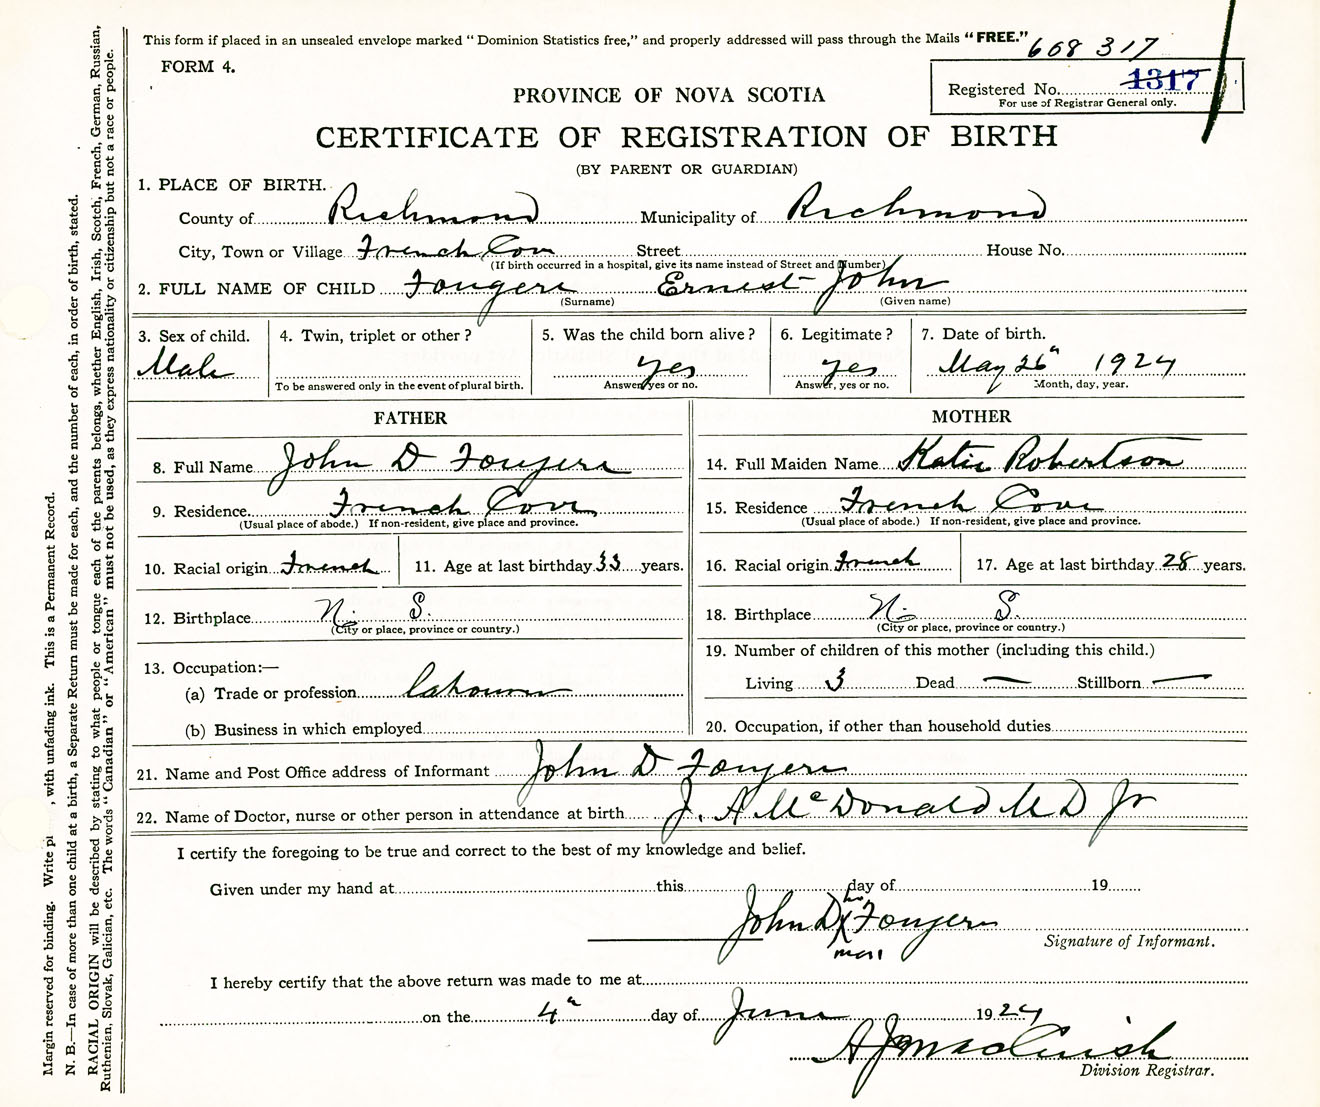 This form if placed in an unsealed envelope marked "Dominion Statistics free," and properly addressed will pass through the Mails "FREE."
668 317
FORM 4.
Registered No. 1317
For use of Registrar General only.
PROVINCE OF NOVA SCOTIA
CERTIFICATE OF REGISTRATION OF BIRTH
(BY PARENT OR GUARDIAN)
1. PLACE OF BIRTH.
County of Richmond Municipality of Richmond
City, Town or Village French Cove Street House No.
(If birth occurred in a hospital, give its name instead of Street and Number)
2. FULL NAME OF CHILD Fougere Ernest John
(Surname) (Given name)
3. Sex of child. 4. Twin, triplet or other? 5. Was the child born alive? 6. Legitimate? 7. Date of birth.
Male yes yes May 26th 1924
To be answered only in the event of plural birth. Answer, yes or no. Answer, yes or no. Month, day, year.
FATHER MOTHER
8. Full Name John D Fougere 14. Full Maiden Name Katie Robertson
9. Residence French Cove 15. Residence French Cove
(Usual place of abode.) If non-resident, give place and province. (Usual place of abode.) If non-resident, give place and province.
10. Racial origin French 11. Age at last birthday 33 years. 16. Racial origin French 17. Age at last birthday 28 years.
12. Birthplace N. S. 18. Birthplace N. S.
(City or place, province or country.) (City or place, province or country.)
13. Occupation:— 19. Number of children of this mother (including this child.)
(a) Trade or profession Labourer Living 3 Dead — Stillborn —
(b) Business in which employed 20. Occupation, if other than household duties
21. Name and Post Office address of Informant John D Fougere
22. Name of Doctor, nurse or other person in attendance at birth J. A McDonald M D Jr
I certify the foregoing to be true and correct to the best of my knowledge and belief.
Given under my hand at this day of 19
his
John D X Fougere
mark
Signature of Informant.
I hereby certify that the above return was made to me at
on the 4th day of June 1924
A J MacCuish
Division Registrar.
Margin reserved for binding. Write pl , with unfading ink. This is a Permanent Record.
N. B.—In case of more than one child at a birth, a Separate Return must be made for each, and the number of each, in order of birth, stated.
RACIAL ORIGIN will be described by stating to what people or tongue each of the parents belongs, whether English, Irish, Scotch, French, German, Russian,
Ruthenian, Slovak, Galician, etc. The words "Canadian" or "American" must not be used, as they express nationality or citizenship but not a race or people.